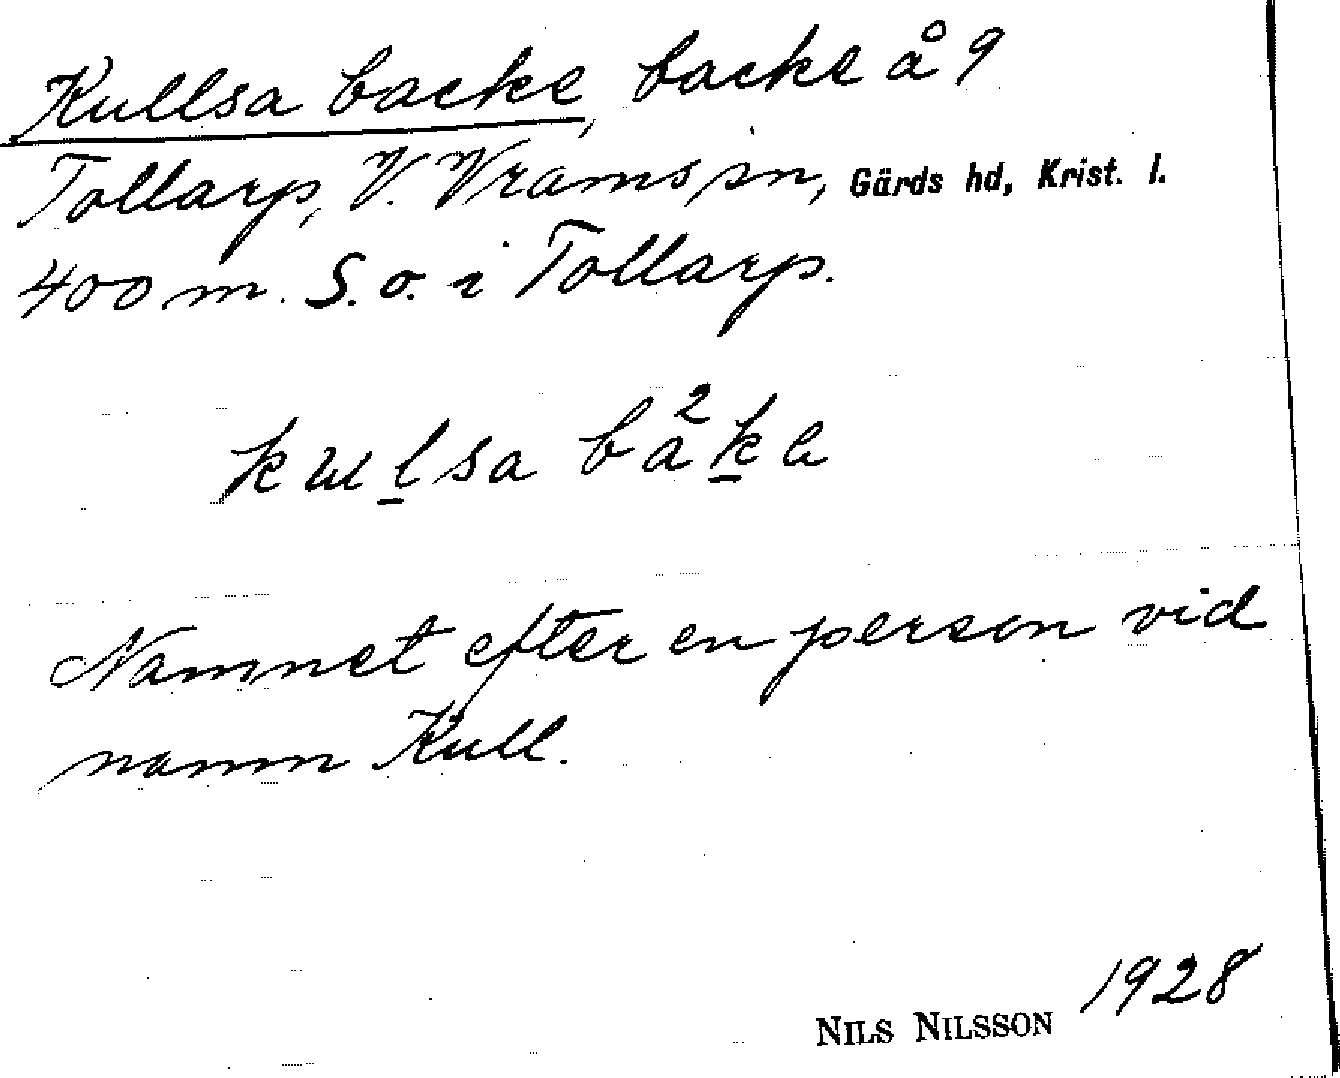 Kullsa backe, backe å 9
Tollarp, V. Vrams sn, Gärds hd, Krist. l.
400 m. S.o. i Tollarp.
kulsa bå²ka
Namnet efter en person vid
namn Kull.
NILS NILSSON 1928